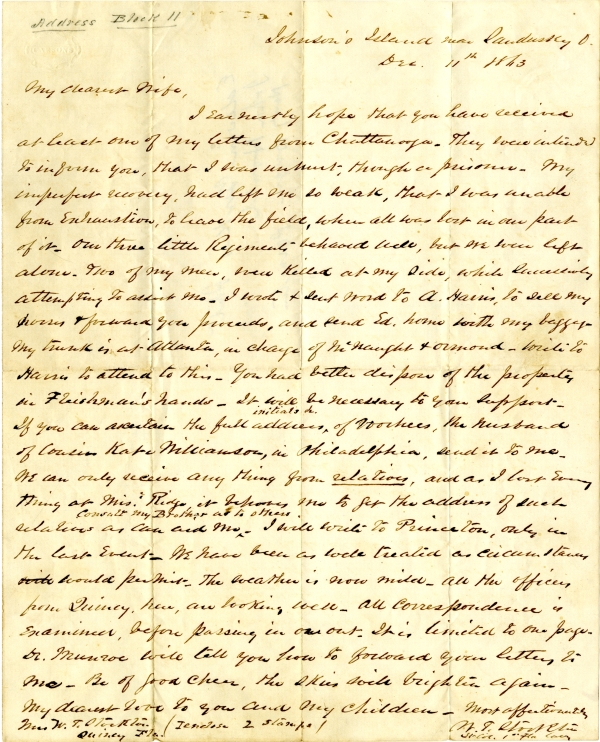 Address Block 11
Johnson's Island near Sandusky O.
Dec. 11th 1863
My dearest Wife,
I earnestly hope that you have received
at least one of my letters from Chattanooga - They were intended
to inform you, that I was unhurt, though a prisoner - My
imperfect recovery, had left me so weak, that I was unable
from Exhaustion, to leave the field, when all was lost in our part
of it - Our three little Regiments behaved well, but we were left
alone - Two of my men, were killed at my side, while
attempting to assist me - I wrote & sent word to A. Harris, to sell my
horses & forward you proceeds, and send Ed. home with my baggage
My trunk is at Atlanta, in charge of McNaught & Ormond - Write to
Harris to attend to this - You had better dispose of the property
in Fleishman's hands - It will be necessary to your support -
initials &c
If you can ascertain the full address, of Voorhees, the husband
of Cousin Kate Williamson, in Philadelphia, send it to me -
We can only receive any thing from relatives, and as I lost Every
thing at Miss: Ridge, it me to get the address of such
consult my Brother as to others
relatives as can aid me, - I will write to Princeton, only in
the last Event - We have been as well treated as circumstances
would permit - The weather is now mild - all the officers
from Quincy, here, are looking well - All correspondence is
Examined, before passing in or out - It is limited to one page -
Dr. Munroe will tell you how to forward your letters to
me - Be of good cheer, the skies will brighten again -
My dearest love to you and my children - Most affectionately
Mrs W. T. Stockton (Enclose 2 stamps) W. T. Stockton
Quincy Fla.